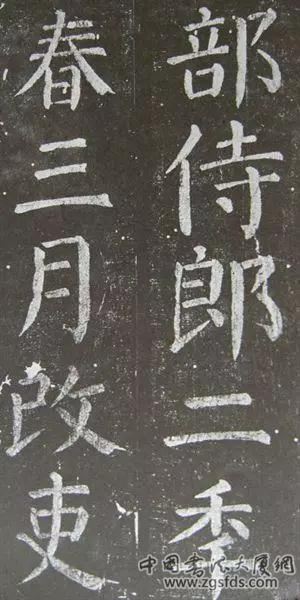 部侍郎二秊
春三月改吏
中國書法大厦網
www.zgsfds.com